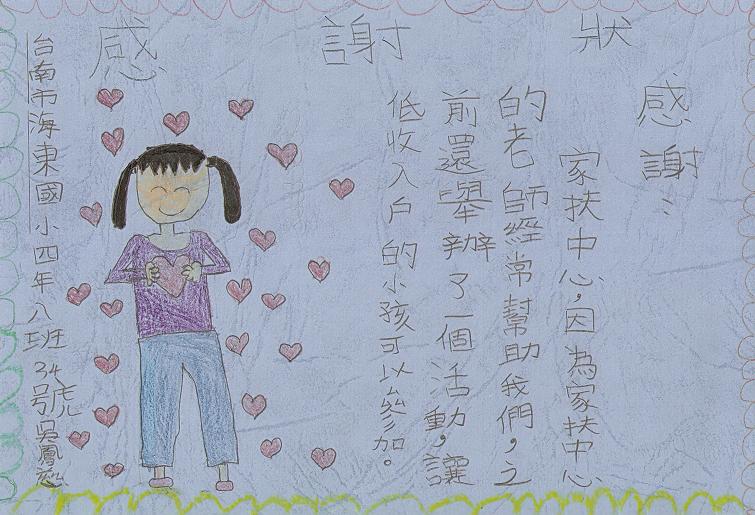 感謝狀
感謝：
家扶中心，因為家扶中心
的老師經常幫助我們，之
前還舉辦了一個活動，讓
低收入戶的小孩可以參加。
台南市海東國小四年八班34號吳鳳慈